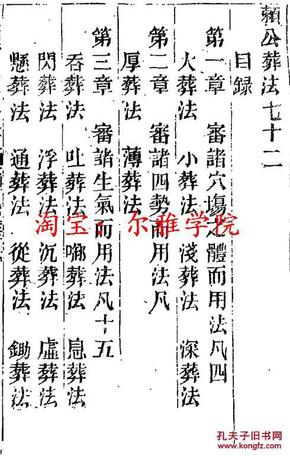 賴公葬法七十二
目録
第一章 審諸穴塲之體而用法凡四
大葬法 小葬法 淺葬法 深葬法
第二章 審諸四勢而用法凡
厚葬法 薄葬法
第三章 審諸生氣而用法凡十五
吞葬法 吐葬法 噏葬法 息葬法
閃葬法 浮葬法 沉葬法 虛葬法
懸葬法 通葬法 從葬法 鋤葬法
淘宝 尔雅学院
孔夫子旧书网
www.kongfz.com